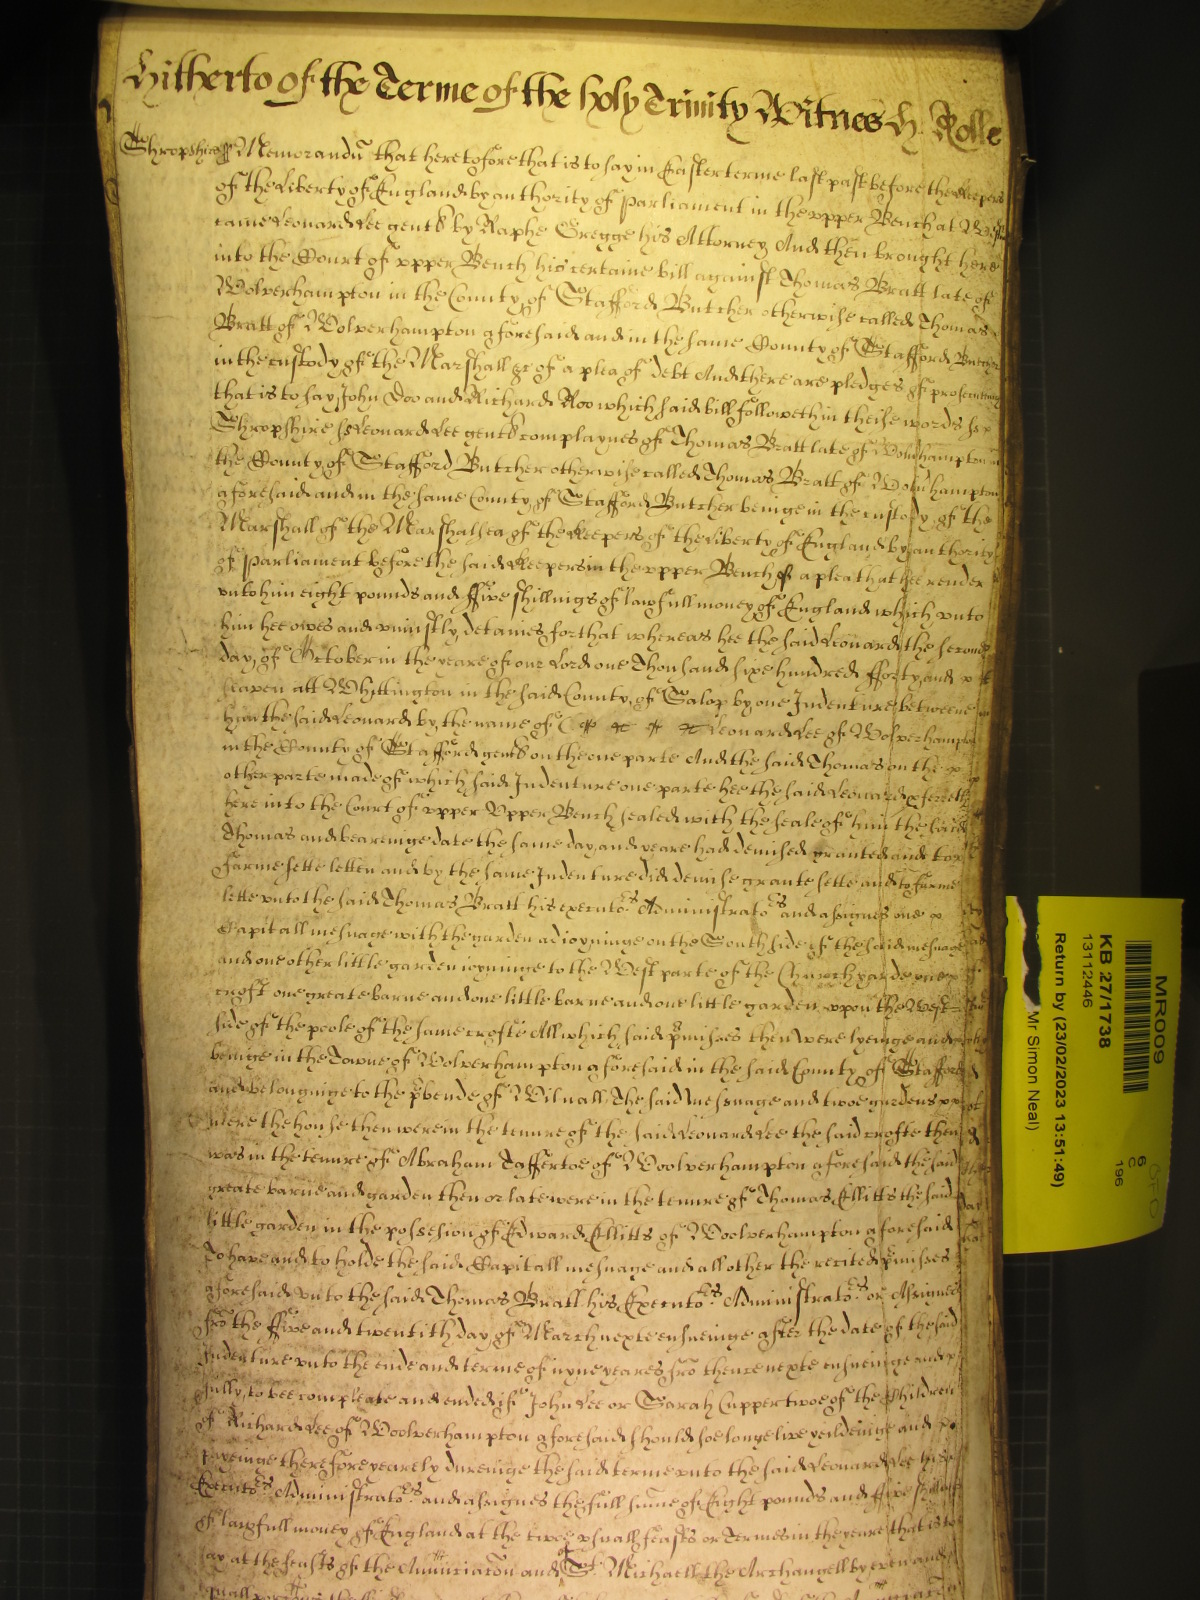 Hitherto of the Terme of the holy Trinity Witnes H. Rolle
Shropshire ss Memorandū that heretofore that is to say in Easter terme last past before the Keepers
of the Liberty of England by authority of Parliament in the vpper Bench at
came Leonard Lee gent by Raphe Gregge his Attorney And then brought here
into the Court of vpper Bench his certaine bill against Thomas Bratt late of
Wolverhampton in the County of Stafford Butcher otherwise called Thomas
Bratt of Wolverhampton aforesaid and in the same County of Stafford Butcher
in the custody of the Marshall &c of a plea of debt And there are pledges of prosecuting
that is to say John Doo and Richard Roo which said bill followeth in theise words ss
Shropshire ss Leonard Lee gent complaynes of Thomas Bratt late of Wolverhampton in
the County of Stafford Butcher otherwise called Thomas Bratt of Wolverhampton
aforesaid and in the same County of Stafford Butcher beinge in the custody of the
Marshall of the Marshalsea of the Keepers of the Liberty of England by authority
of Parliament before the said Keepers in the vpper Bench of a plea that hee render
vnto him eight pounds and ffive shillings of lawfull money of England which vnto
him hee owes and vniustly detaines for that whereas hee the said Leonard the second
day of October in the yeare of our Lord one Thousand sixe hundred fforty and
seaven att Whittington in the said County of Salop by one Indenture betweene
him the said Leonard by the name of Leonard Lee of Wolverhampton
in the County of Stafford gent on the one parte And the said Thomas on the
other parte made of which said Indenture one parte hee the said Leonard
here into the Court of vpper Vpper Bench sealed with the seale of him the said
Thomas and beareinge date the same day and yeare had demised granted and to
farme sette letten and by the same Indenture did demise grante sette and to farme
lette vnto the said Thomas Bratt his executors Administrators and assignes one
Capitall mesuage with the garden adioyninge on the South side of the said mesuage
and one other little garden ioyninge to the West parte of the Churchyarde one
croft one greate barne and one little barne and one little garden vpon the West
side of the poole of the same crofte All which said p̄misses then were lyeinge and
beinge in the Towne of Wolverhampton aforesaid in the said County of Stafford
and belonginge to the p̄bende of Wilnall The said Messuage and twoe gardens
neere the house then were in the tenure of the said Leonard Lee the said crofte then
was in the tenure of Abraham Taffertoe of Woolverhampton aforesaid the said
greate barne and garden then or late were in the tenure of Thomas Ellitts the said
little garden in the possesion of Edward Ellitts of Woolverhampton aforesaid
To have and to holde the said Capitall mesuage and all other the recited p̄misses
aforesaid vnto the said Thomas Bratt his Executors Administrators or Assignes
frō the ffive and twentith day of March nexte ensueinge after the date of the said
Indenture vnto the ende and terme of nyne yeares frō thence nexte ensueinge and
fully to bee compleate and ended if John Lee or Sarah Cupper twoe of the Children
of Richard Lee of Woolverhampton aforesaid should soe longe live yeildeinge and
payeinge therefore yearely dureinge the said terme vnto the said Leonard Lee his
Executors Administrators and assignes the full sum̄e of Eight pounds and ffive shillings
of lawfull money of England at the twoe vsuall feasts or Termes in the yeare that is to
say at the feasts of the Annunciacōn and St. Michaell the Archangell by even and
MR009
KB 27/1738
13112446
6
C
196
Return by (23/02/2023 13:51:49)
Mr Simon Neal)